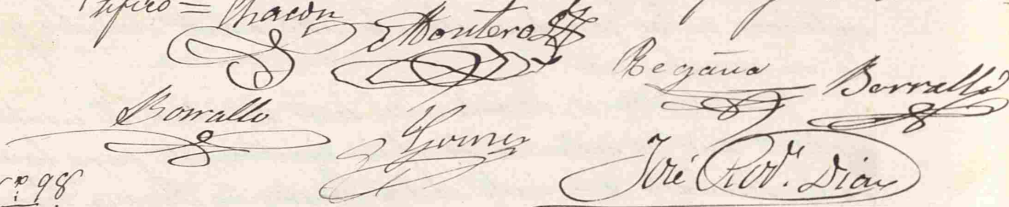 = Chacon Montero
Regaña Borrallo
Borrallo Gomez
José Rod.^z Dias
98